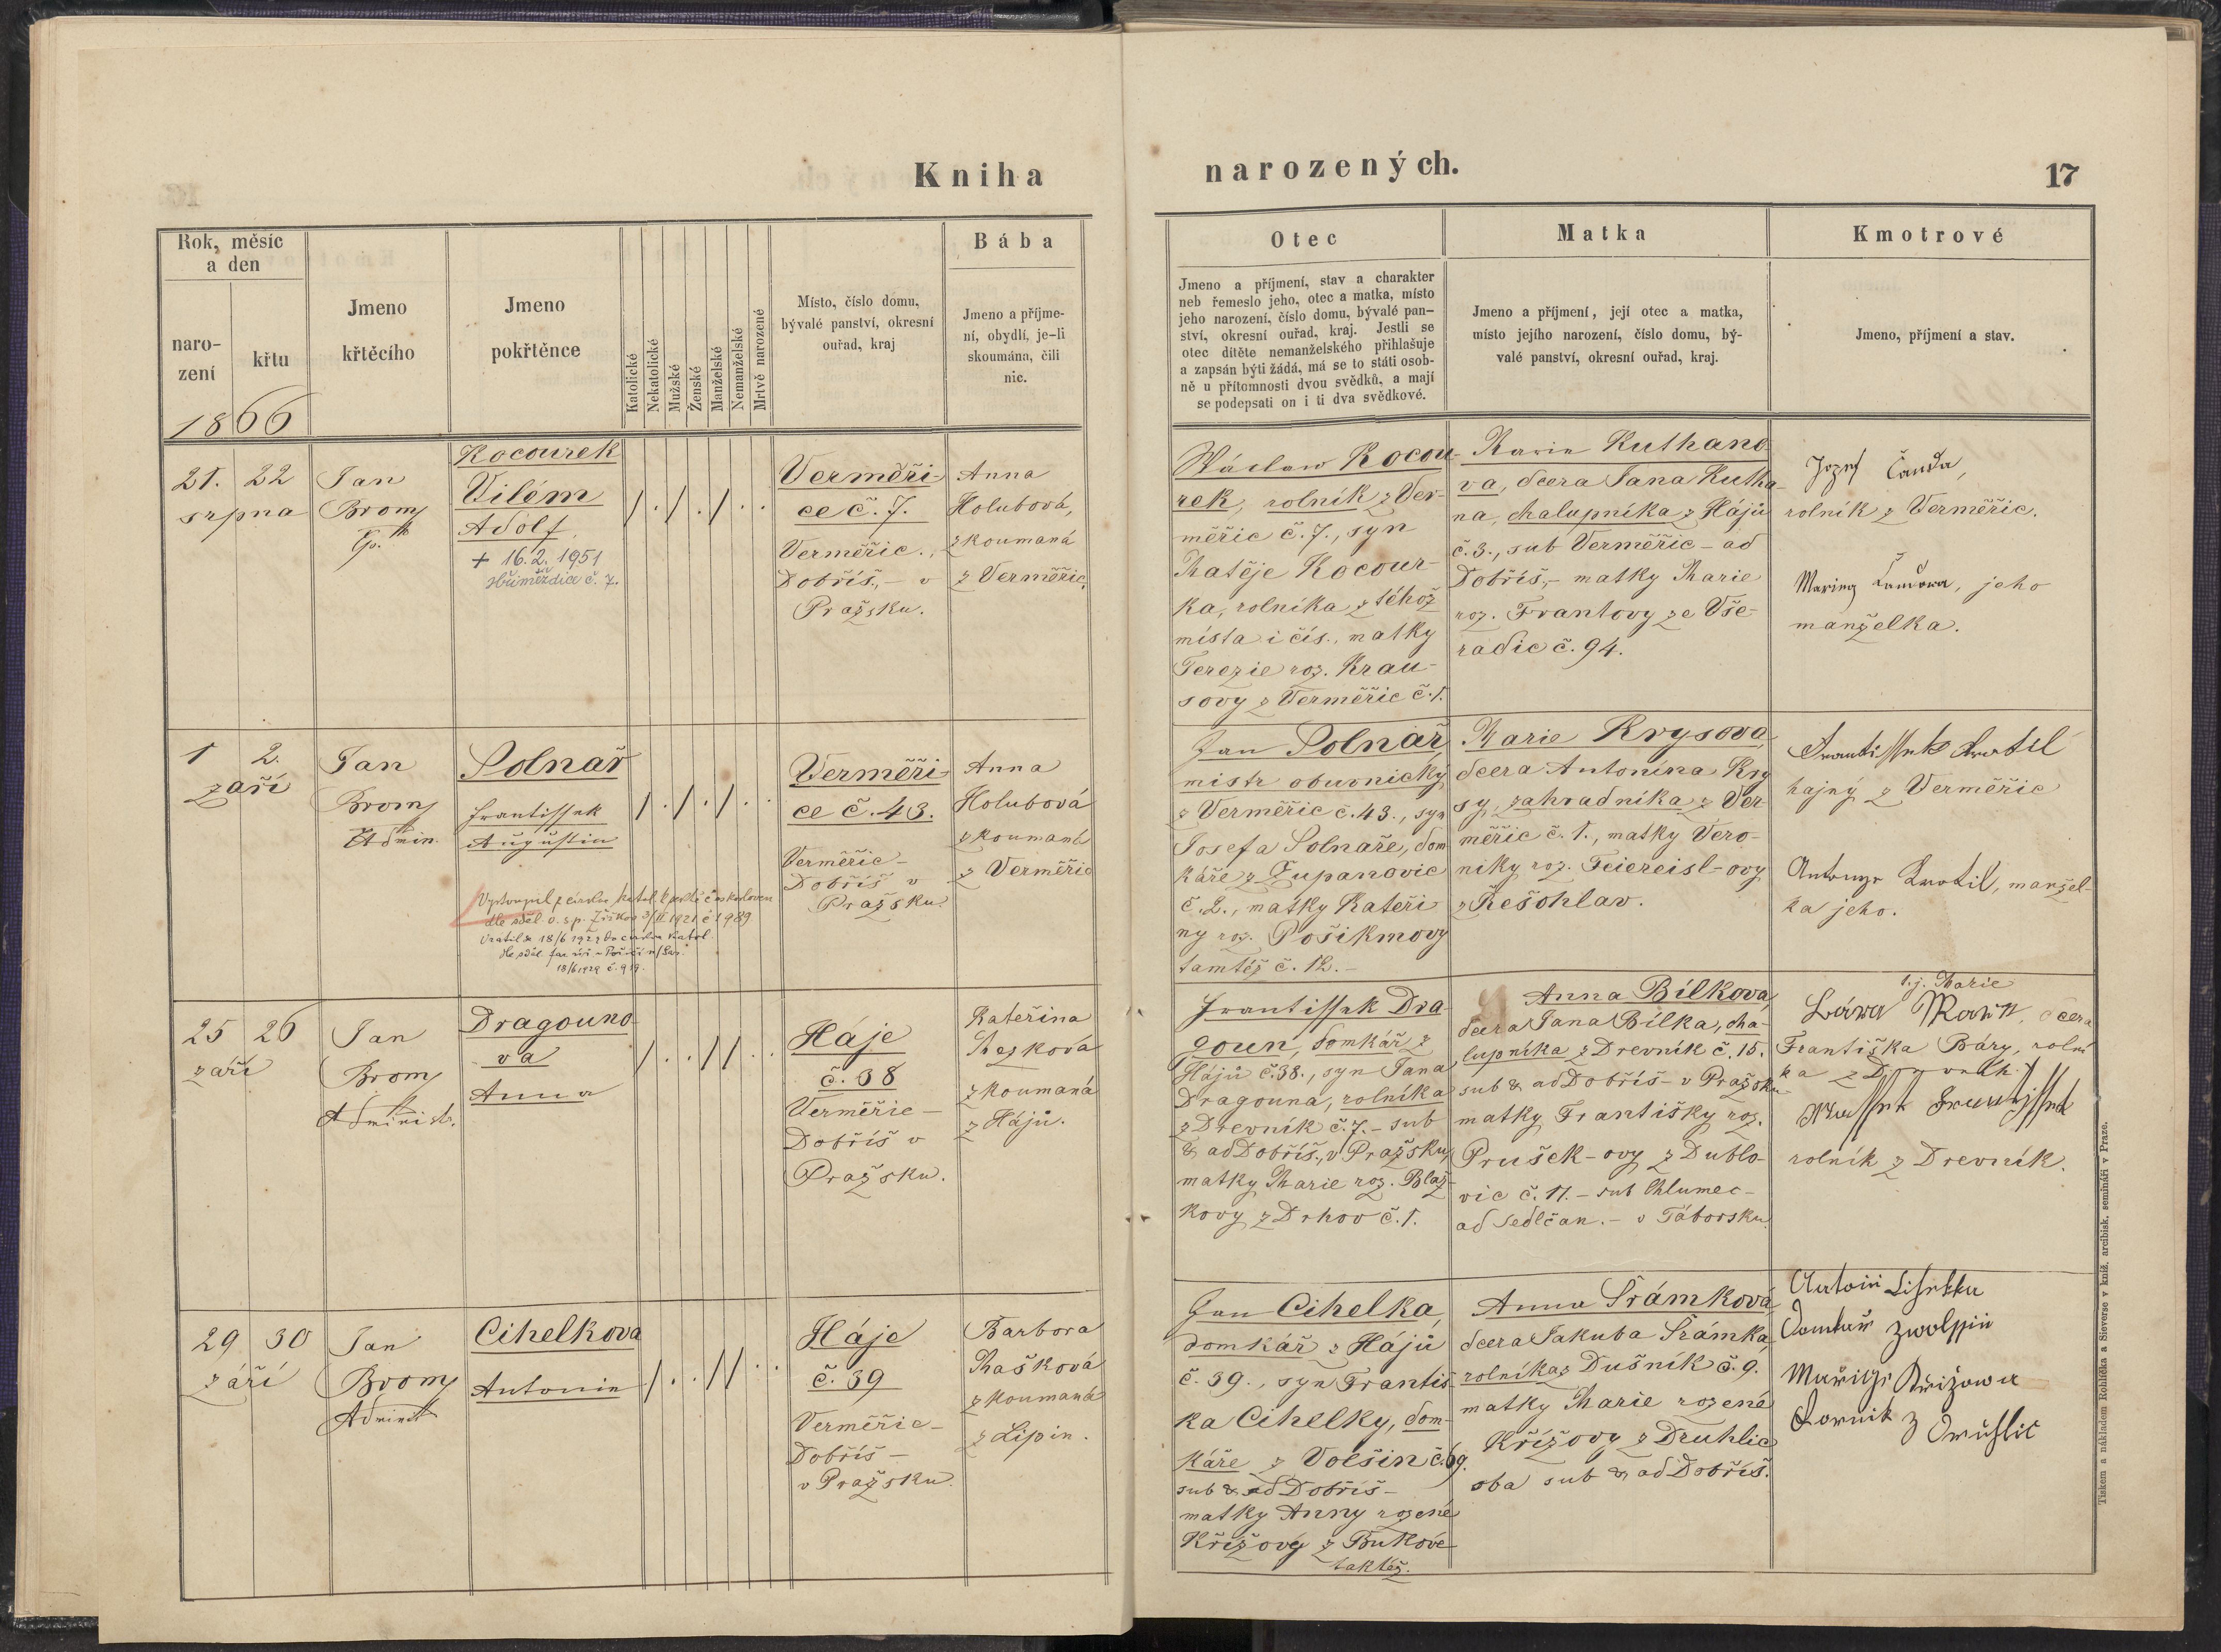 Kniha
narozených.
17
Rok, měsíc
a den
naro-
zení
křtu
1866
Jmeno
křtěcího
Jmeno
pokřtěnce
Katolické
Nekatolické
Mužské
Ženské
Manželské
Nemanželské
Mrtvě narozené
Místo, číslo domu,
bývalé panství, okresní
ouřad, kraj
Bába
Jmeno a příjme-
ní, obydlí, je-li
skoumána, čili
nic.
Otec
Jmeno a příjmení, stav a charakter
neb řemeslo jeho, otec a matka, místo
jeho narození, číslo domu, bývalé pan-
ství, okresní ouřad, kraj. Jestli se
otec dítěte nemanželského přihlašuje
a zapsán býti žádá, má se to státi osob-
ně u přítomnosti dvou svědků, a mají
se podepsati on i ti dva svědkové.
Matka
Jmeno a příjmení, její otec a matka,
místo jejího narození, číslo domu, bý-
valé panství, okresní ouřad, kraj.
Kmotrové
Jmeno, příjmení a stav.
21. 22
srpna
Jan
Bromy
Kocourek
Vilém
Adolf
+ 16.2.1951
č. 7.
/ . / . / . .
Verměři-
ce č. 7.
Verměřic.,
Dobříš, - v
Pražsku.
Anna
Holubová,
zkoumaná
z Verměřic.
Václaw Kocou-
rek, rolník z Ver-
měřic č. 7., syn
Matěje Kocour-
ka, rolníka z téhož
místa i čís., matky
Terezie roz. Krau-
sovy z Verměřic č. 1.
Marie Kuthano-
va, dcera Jana Kutha-
na, chalupníka z Hájů
č. 3., sub Verměřic - ad
Dobříš, - matky Marie
roz. Frantovy ze Vše-
radic č. 94.
Jozef Čanda,
rolník z Verměřic.
, jeho
manželka.
1 2.
září
Jan
Bromy
Admin.
Solnař
Frantissek
Augustin
/ . / . / . .
Vystoupil z církve katol.
18/6 1929 č. 919.
Verměři-
ce č. 43.
Verměřic -
Dobříš v
Pražsku
Anna
Holubová
zkoumaná
z Verměřic
Jan Solnař,
mistr obuvnický
z Verměřic č. 43., syn
Josefa Solnaře, dom
káře z Županovic
č. 2., matky Kateři
ny roz. Pošikmovy
tamtéž č. 12. -
Marie Krysova,
dcera Antonína Kry
sy, zahradníka z Ver
měřic č. 1., matky Vero-
niky roz. Feiereisl-ovy
z Řešohlav.
Frantissek Kratil
hajný z Verměřic
Kratil, manžel-
ka jeho.
25 26
září
Jan
Bromy
Administr.
Dragouno-
va
Anna
/ . . / / . .
Háje
č. 38
Verměřic -
Dobříš v
Pražsku.
Kateřina
zkoumaná
z Hájů.
Frantissek Dra-
goun, domkář z
Hájů č. 38., syn Jana
Dragouna, rolníka
z Drevník č. 7. - sub
& ad Dobříš., v Pražsku,
matky Marie roz. Blaž-
kovy z Drhov č. 1.
Anna Bílkova,
dcera Jana Bílka, cha-
lupníka z Drevník č. 15.
sub & ad Dobříš - v Pražsku
matky Františky roz.
Prušek-ovy z Dublo-
vic č. 11. - sub Chlumec -
ad Sedlčan. - v Táborsku.
t.j. Marie
dcera
Františka Báry, rolní
ka z
rolník z Drevník.
29 30
září
Jan
Bromy
Administ
Cihelkova
Antonie
/ . . / / . .
Háje
č. 39
Verměřic -
Dobříš -
v Pražsku.
Barbora
Mašková
zkoumaná
z Lipin.
Jan Cihelka,
domkář z Hájů
č. 39., syn Františ-
ka Cihelky, dom-
káře z Volšin č. 69.
sub & ad Dobříš -
matky Anny rozené
Křížovy z Bukové
taktéž.
Anna Šrámková
dcera Jakuba Šrámka,
rolníka z Dušník č. 9.
matky Marie rozené
Křížovy z Druhlic
oba sub & ad Dobříš.
Domkář
Křižowa
z
Tiskem a nákladem Rohlíčka a Sieverse v kníž. arcibisk. semináři v Praze.